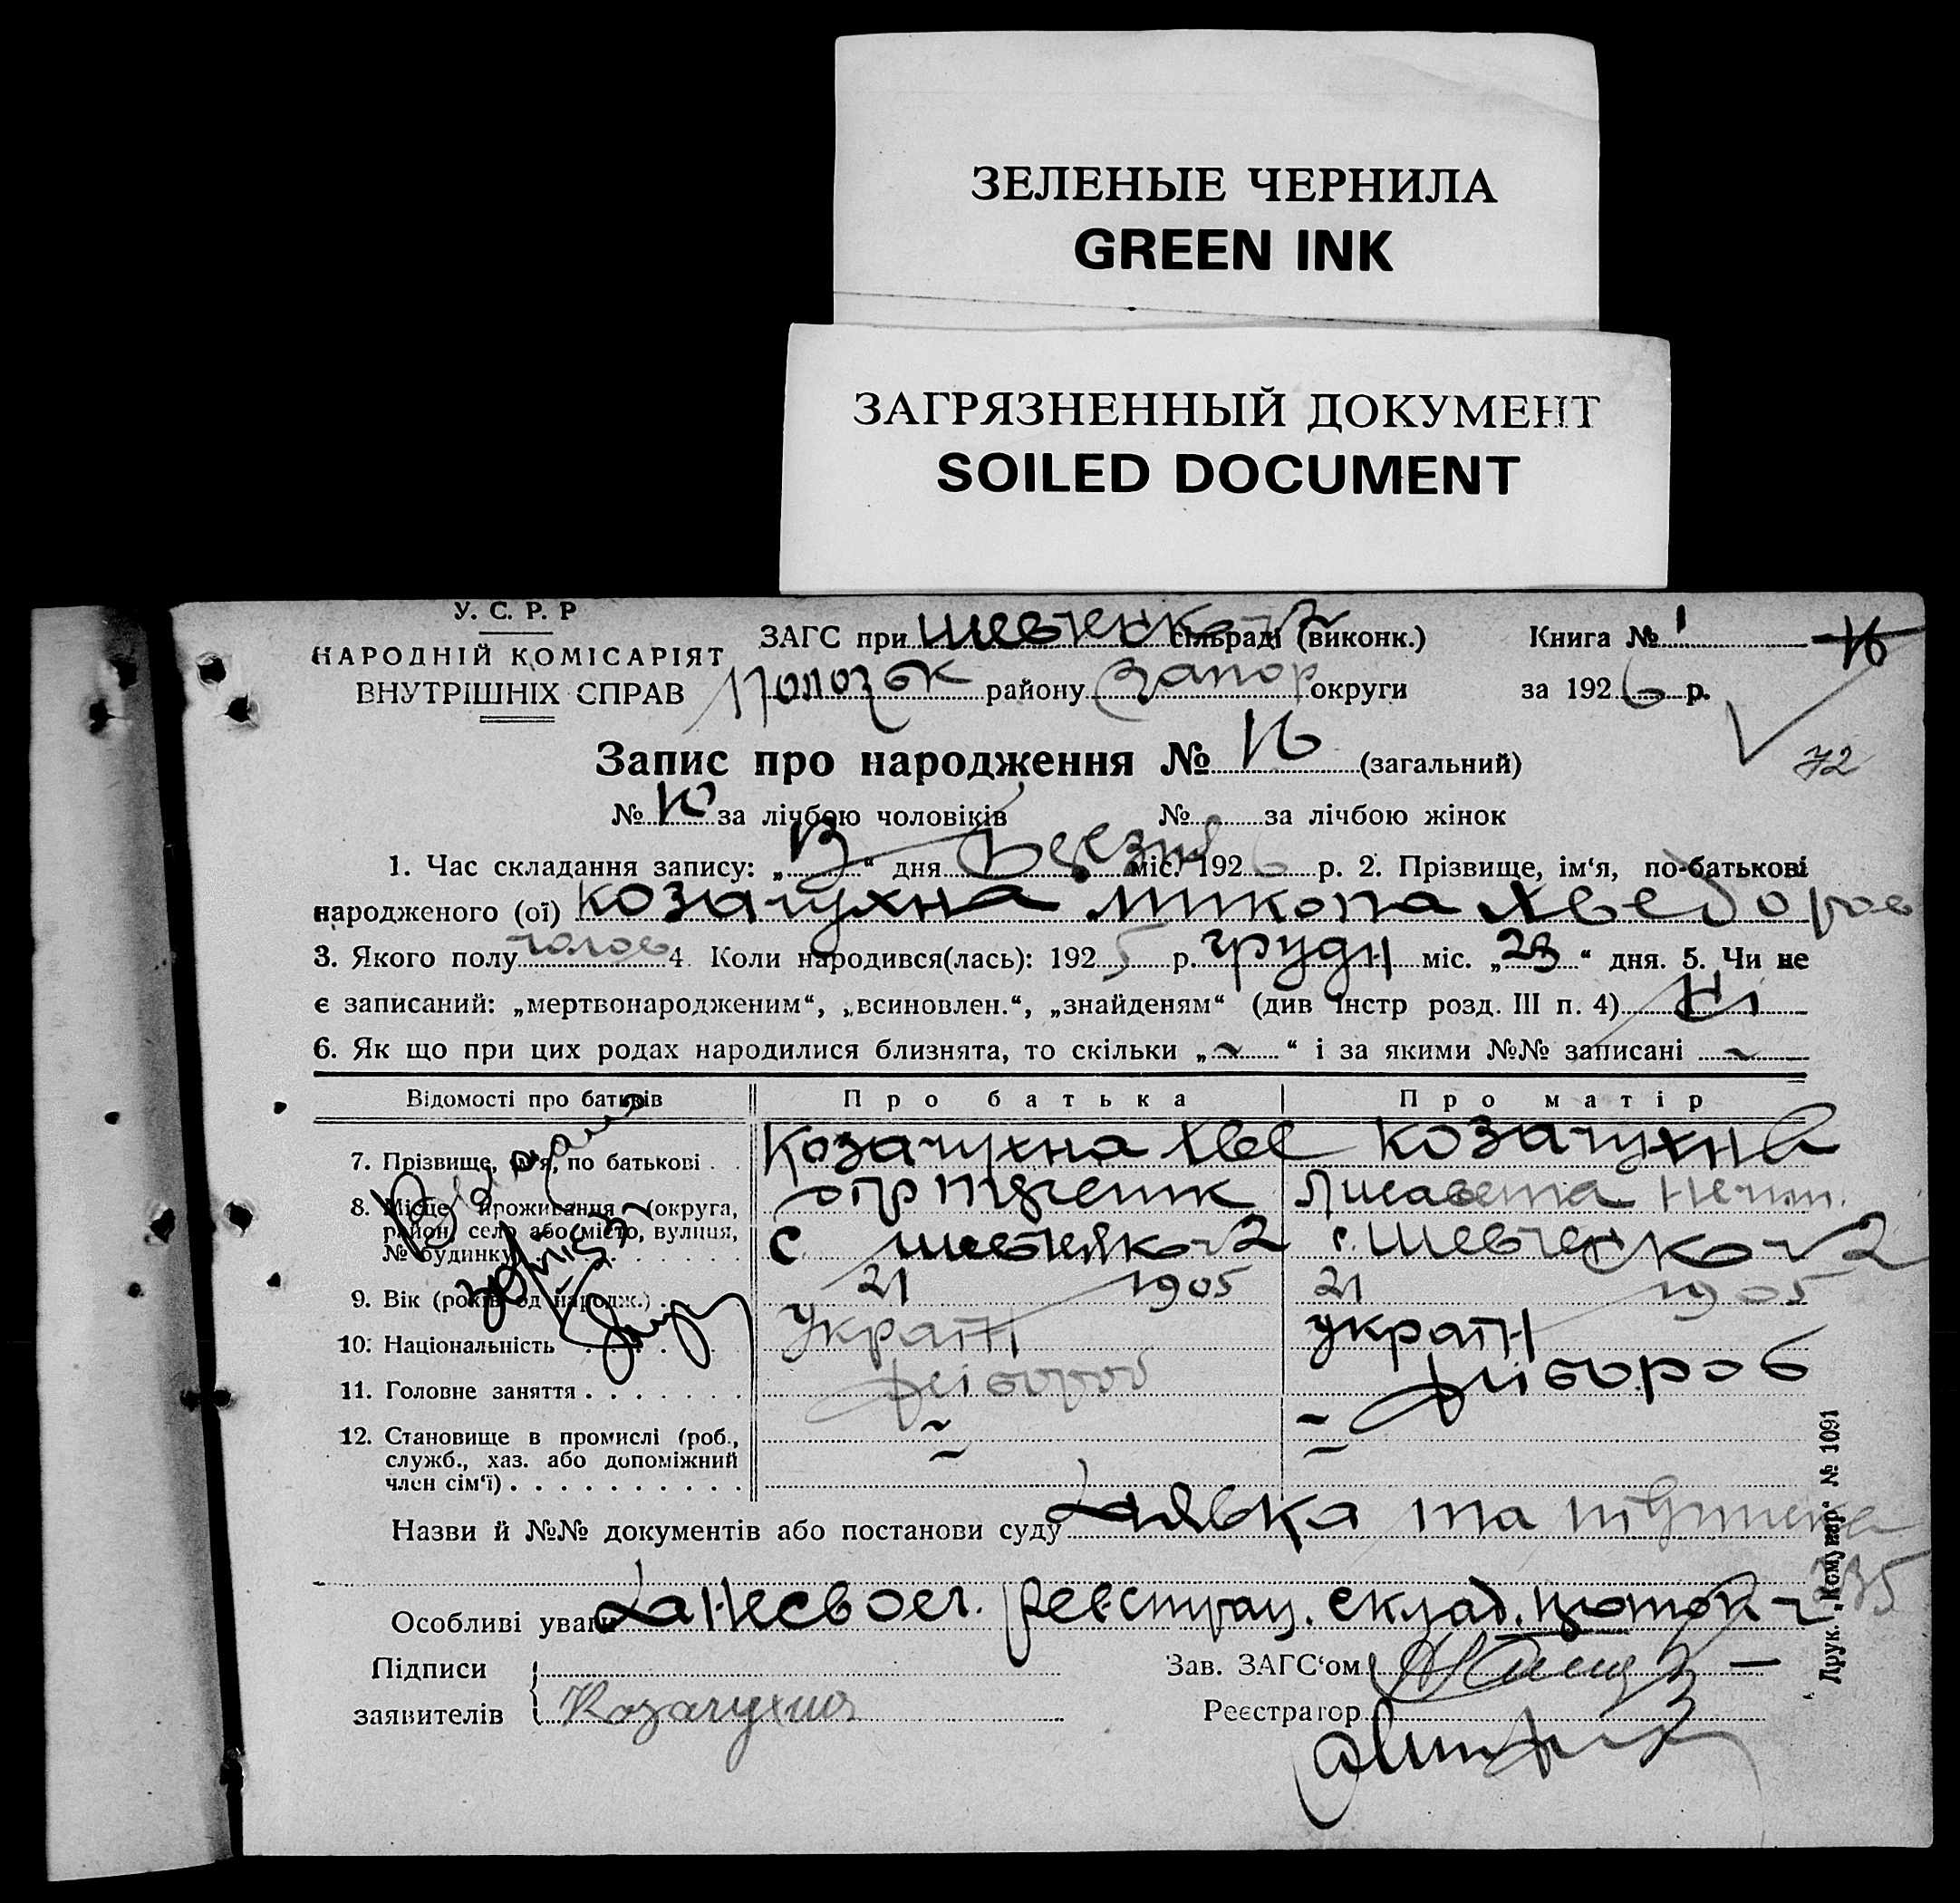 ЗЕЛЕНЫЕ ЧЕРНИЛА
GREEN INK
ЗАГРЯЗНЕННЫЙ ДОКУМЕНТ
SOILED DOCUMENT
У. С. Р. Р
НАРОДНІЙ КОМІСАРІЯТ
ВНУТРІШНІХ СПРАВ
ЗАГС при Шевченков сільраді (виконк.) Книга № 1 16
Пологівськ району Запор округи за 1926 р.
Запис про народження № 16 (загальний)
72
№ 10 за лічбою чоловіків № за лічбою жінок
1. Час складання запису: „13“ дня Березня міс. 1926 р. 2. Прізвище, ім‘я, по-батькові
народженого (ої) Козачухна Микола Хведоров
3. Якого полу чолов 4. Коли народився(лась): 1925 р. грудн міс. „23“ дня. 5. Чи не
є записаний: „мертвонародженим“, „всиновлен.“, „знайденям“ (див інстр розд. III п. 4) Ні
6. Як що при цих родах народилися близнята, то скільки „~“ і за якими №№ записані ~
Відомості про батьків Про батька Про матір
7. Прізвище, ім‘я, по батькові Козачухна Хве Козачухна
8. Місце проживання (округа, Лисавета
район, село або місто, вулиця, с. Шевченкове с. Шевченкове
№ будинку)
9. Вік (років од народж.) 21 1905 21 1905
10. Національність україн україн
11. Головне заняття хлібороб хлібороб
12. Становище в промислі (роб.,
служб., хаз. або допоміжний
член сім‘ї)
Назви й №№ документів або постанови суду Заявка та підписка
Особливі уваги За несвоєч. реєстрац. склад. протокол 35
Підписи Зав. ЗАГС‘ом
заявителів Козачухна Реєстратор
Друк. „Комунар“ № 1091